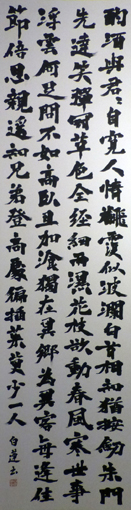 酌酒與君〻自寬人情飜覆似波瀾白首相知猶按劍朱門
先達笑彈冠草色全經細雨濕花枝欲動春風寒世事
浮雲何足問不如高臥且加飡獨在異鄉為異客每逢佳
節倍思親遙知兄弟登高處徧插茱萸少一人